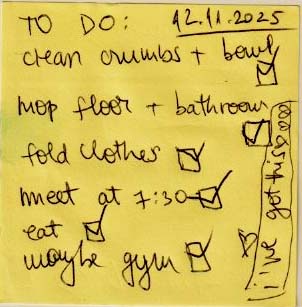 TO DO:
12.11.2025
clean crumbs + bowl
mop floor + bathroom
fold clothes
meet at 7:30
eat
maybe gym
i've got this